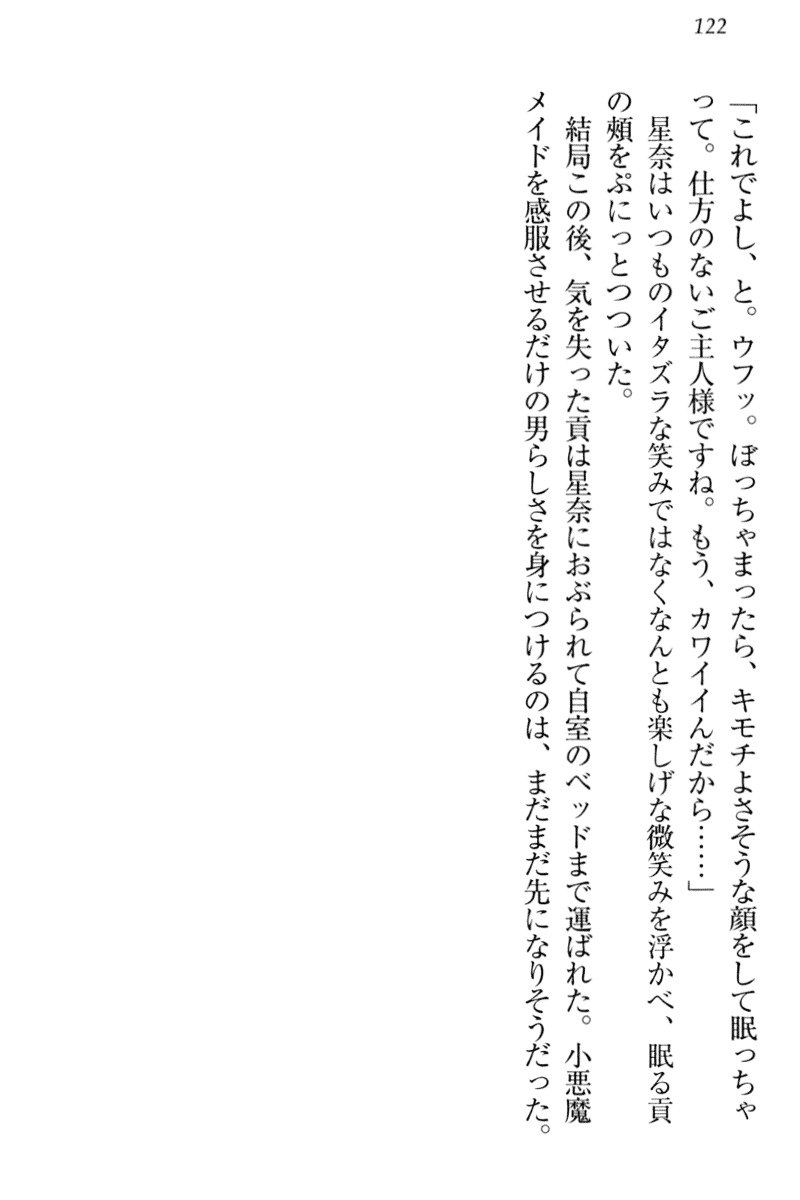 122
「これでよし、と。ウフッ。ぼっちゃまったら、キモチよさそうな顔をして眠っちゃ
って。仕方のないご主人様ですね。もう、カワイイんだから……」
　星奈はいつものイタズラな笑みではなくなんとも楽しげな微笑みを浮かべ、眠る貢
の頰をぷにっとつついた。
　結局この後、気を失った貢は星奈におぶられて自室のベッドまで運ばれた。小悪魔
メイドを感服させるだけの男らしさを身につけるのは、まだまだ先になりそうだった。